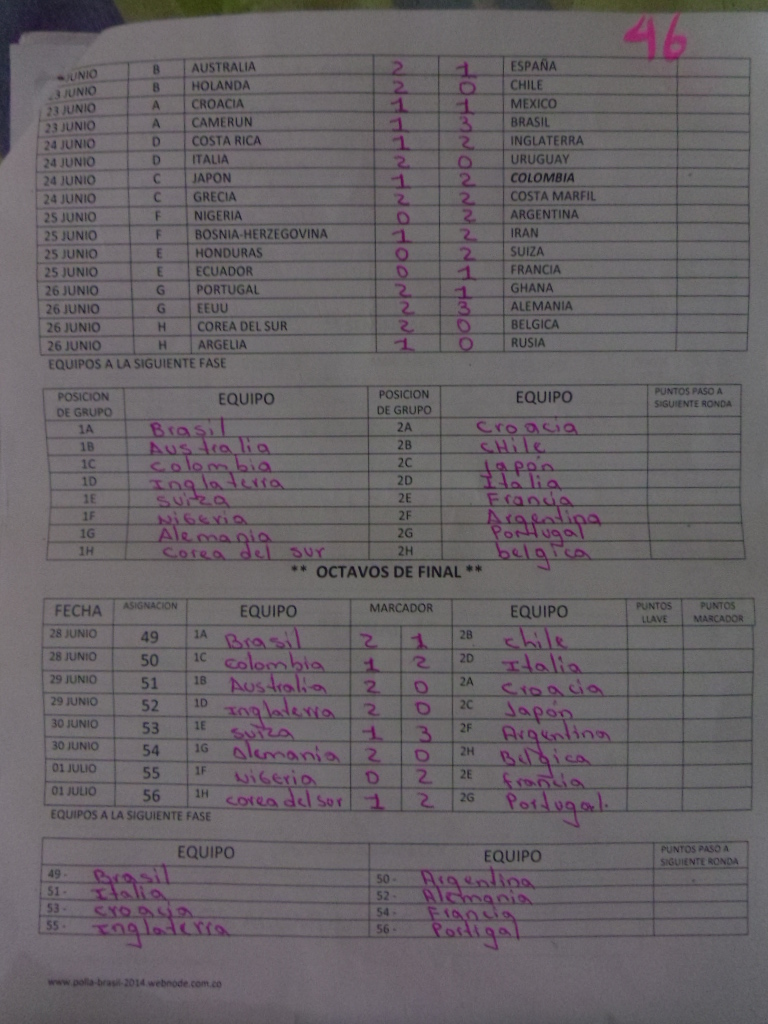 46
JUNIO B AUSTRALIA 2 1 ESPAÑA
23 JUNIO B HOLANDA 2 0 CHILE
23 JUNIO A CROACIA 1 1 MEXICO
23 JUNIO A CAMERUN 1 3 BRASIL
24 JUNIO D COSTA RICA 1 2 INGLATERRA
24 JUNIO D ITALIA 2 0 URUGUAY
24 JUNIO C JAPON 1 2 COLOMBIA
24 JUNIO C GRECIA 2 2 COSTA MARFIL
25 JUNIO F NIGERIA 0 2 ARGENTINA
25 JUNIO F BOSNIA-HERZEGOVINA 1 2 IRAN
25 JUNIO E HONDURAS 0 2 SUIZA
25 JUNIO E ECUADOR 0 1 FRANCIA
26 JUNIO G PORTUGAL 2 1 GHANA
26 JUNIO G EEUU 2 3 ALEMANIA
26 JUNIO H COREA DEL SUR 2 0 BELGICA
26 JUNIO H ARGELIA 1 0 RUSIA
EQUIPOS A LA SIGUIENTE FASE
POSICION DE GRUPO EQUIPO POSICION DE GRUPO EQUIPO PUNTOS PASO A SIGUIENTE RONDA
1A Brasil 2A Croacia
1B Australia 2B CHile
1C Colombia 2C Japón
1D Inglaterra 2D Italia
1E Suiza 2E Francia
1F Nigeria 2F Argentina
1G Alemania 2G Portugal
1H Corea del sur 2H belgica
** OCTAVOS DE FINAL **
FECHA ASIGNACION EQUIPO MARCADOR EQUIPO PUNTOS LLAVE PUNTOS MARCADOR
28 JUNIO 49 1A Brasil 2 1 2B chile
28 JUNIO 50 1C Colombia 1 2 2D Italia
29 JUNIO 51 1B Australia 2 0 2A Croacia
29 JUNIO 52 1D Inglaterra 2 0 2C Japón
30 JUNIO 53 1E Suiza 1 3 2F Argentina
30 JUNIO 54 1G Alemania 2 0 2H Belgica
01 JULIO 55 1F Nigeria 0 2 2E francia
01 JULIO 56 1H corea del sur 1 2 2G Portugal.
EQUIPOS A LA SIGUIENTE FASE
EQUIPO EQUIPO PUNTOS PASO A SIGUIENTE RONDA
49 - Brasil 50 - Argentina
51 - Italia 52 - Alemania
53 - croacia 54 - Francia
55 - Inglaterra 56 - Portigal
www.polla-brasil-2014.webnode.com.co